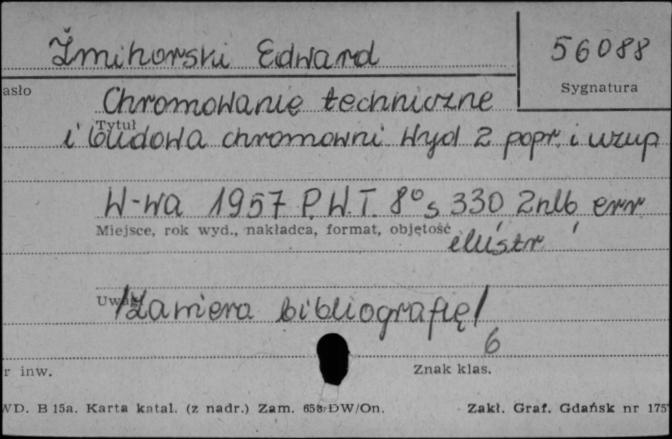 Żmihorski Edward
56088
asło
Sygnatura
Chromowanie techniczne
Tytuł
i budowa chromowni Wyd 2 popr. i uzup
W-wa 1957 P.W.T. 8° s 330, 2nlb, err
Miejsce, rok wyd., nakładca, format, objętość
ilustr
Uwagi
/Zawiera bibliografię/
6
r inw.
Znak klas.
WD. B 15a. Karta katal. (z nadr.) Zam. 658/DW/On.
Zakł. Graf. Gdańsk nr 175